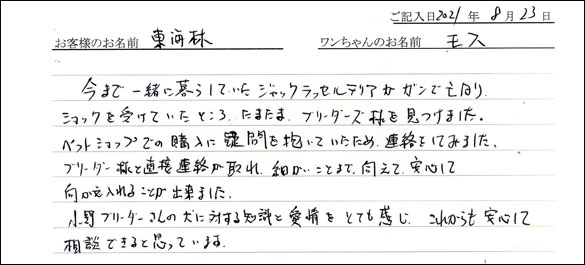 ご記入日2021年8月23日
お客様のお名前 東海林 ワンちゃんのお名前 モス
今まで一緒に暮らしていたジャックラッセルテリアがガンで亡なり、
ショックを受けていたところ、たまたま、ブリーダーズ様を見つけました。
ペットショップでの購入に疑問を抱いていたため、連絡をしてみました。
ブリーダー様と直接連絡が取れ、細かいことまで、伺えて、安心して
向かえ入れることが出来ました。
小野ブリーダーさんの犬に対する知識と愛情をとても感じ、これからも安心して
相談できると思っています。